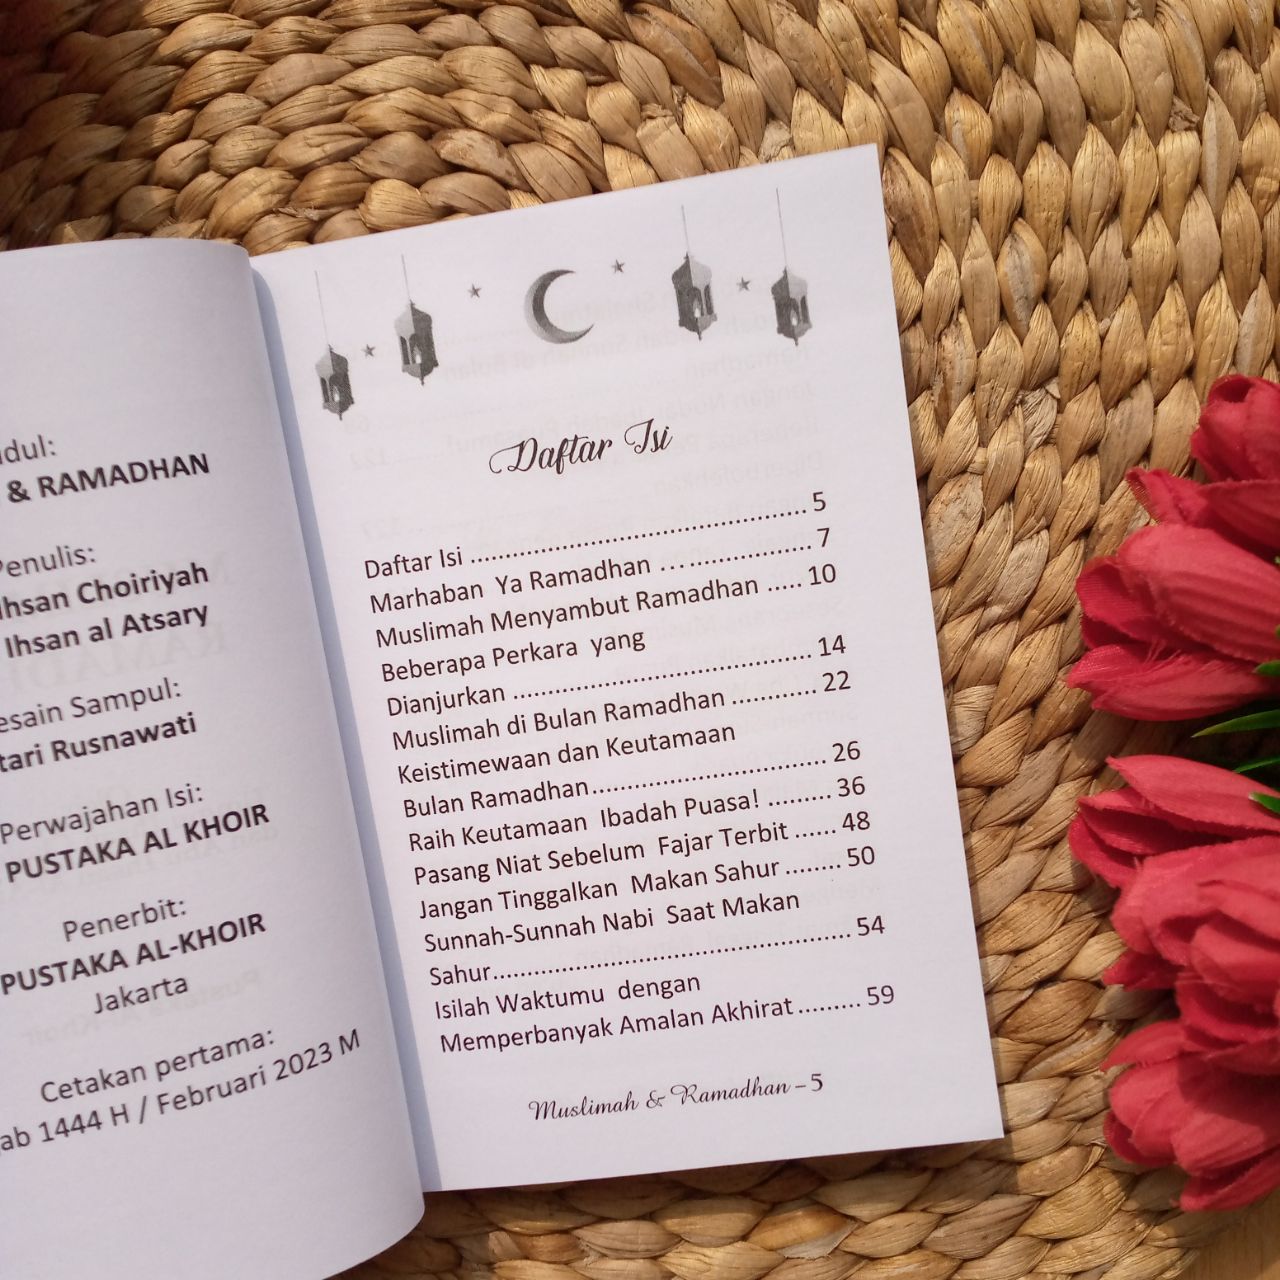 & RAMADHAN
Ihsan Choiriyah
Ihsan al Atsary
Rusnawati
Perwajahan Isi:
PUSTAKA AL KHOIR
Penerbit:
PUSTAKA AL-KHOIR
Jakarta
Cetakan pertama:
1444 H / Februari 2023 M
Daftar Isi
Daftar Isi ................................................ 5
Marhaban Ya Ramadhan .................... 7
Muslimah Menyambut Ramadhan ..... 10
Beberapa Perkara yang
Dianjurkan ........................................... 14
Muslimah di Bulan Ramadhan .......... 22
Keistimewaan dan Keutamaan
Bulan Ramadhan................................. 26
Raih Keutamaan Ibadah Puasa! ......... 36
Pasang Niat Sebelum Fajar Terbit ...... 48
Jangan Tinggalkan Makan Sahur ........ 50
Sunnah-Sunnah Nabi Saat Makan
Sahur.................................................... 54
Isilah Waktumu dengan
Memperbanyak Amalan Akhirat ......... 59
Muslimah & Ramadhan – 5